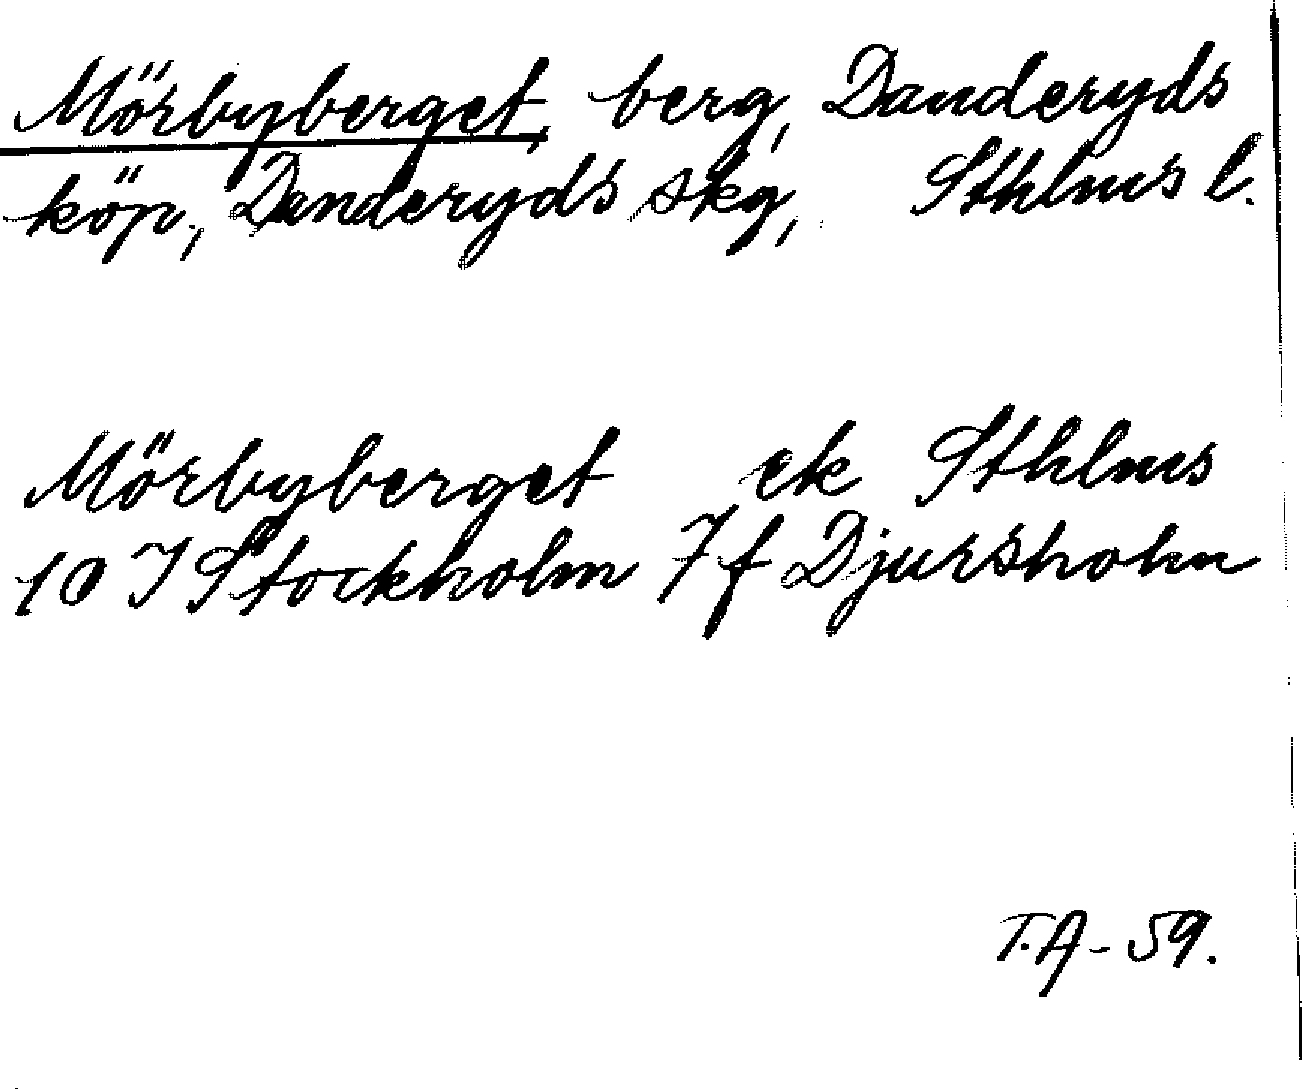 Mörbyberget, berg, Danderyds
köp, Danderyds skg, Sthlms l.
Mörbyberget ek Sthlms
10 I Stockholm 7 f Djursholm
T.A - 59.